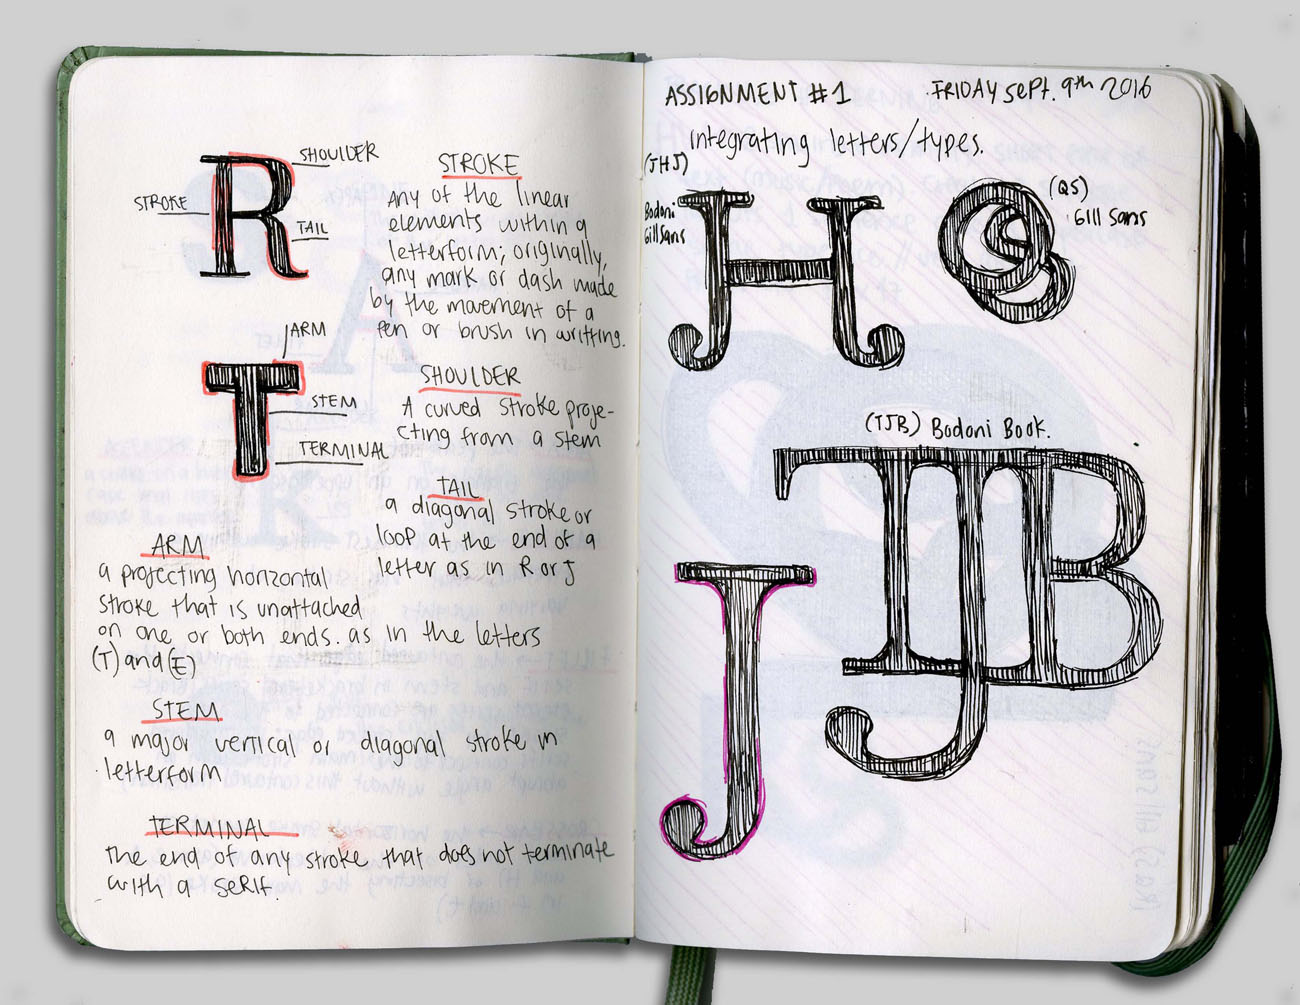 SHOULDER
STROKE
TAIL
R
STROKE
Any of the linear
elements within a
letterform; originally,
any mark or dash made
by the movement of a
pen or brush in writting.
ARM
T
STEM
TERMINAL
SHOULDER
A curved stroke proje-
cting from a stem
TAIL
a diagonal stroke or
loop at the end of a
letter as in R or J
ARM
a projecting horizontal
stroke that is unattached
on one or both ends. as in the letters
(T) and (E)
STEM
a major vertical or diagonal stroke in
letterform
TERMINAL
the end of any stroke that does not terminate
with a serif.
ASSIGNMENT #1 FRIDAY Sept. 9th 2016
Integrating letters/types.
(JHJ)
Bodoni
Gill Sans
JHJ
(QS)
Gill Sans
QS
(TJB) Bodoni Book.
TJB
J